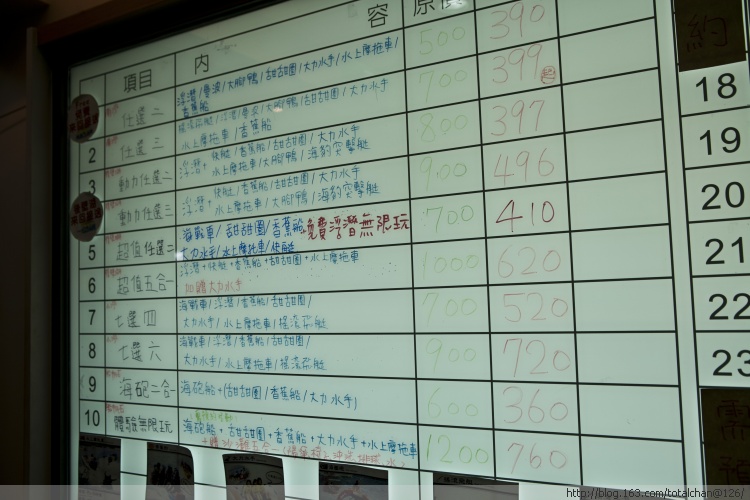 項目 內容 原價
任選二 浮潛/曼波/大腳鴨/甜甜圈/大力水手/水上摩拖車/ 500 390
香蕉船
2 任選三 700 399
水上摩拖車/香蕉船
動力任選二 浮潛+快艇/香蕉船/甜甜圈/大力水手 800 397
水上摩拖車/大腳鴨/海豹突擊艇
動力任選三 浮潛+快艇/香蕉船/甜甜圈/大力水手 900 496
水上摩拖車/大腳鴨/海豹突擊艇
5 超值任選二 海戰車/甜甜圈/香蕉船 免費浮潛無限玩 700 410
大力水手/水上摩托車/快艇
6 超值五合一 浮潛+快艇+香蕉船+甜甜圈+水上摩拖車 1000 620
加贈大力水手
7 七選四 海戰車/浮潛/香蕉船/甜甜圈/ 700 520
大力水手/水上摩拖車/搖滾飛艇
8 七選六 海戰車/浮潛/香蕉船/甜甜圈/ 900 720
大力水手/水上摩拖車/搖滾飛艇
9 海砲二合一 海砲船+(甜甜圈/香蕉船/大力水手) 600 360
10 體驗無限玩 海砲船+甜甜圈+香蕉船+大力水手+水上摩拖車 1200 760
約
18
19
20
21
22
23
http://blog.163.com/totalchan@126/